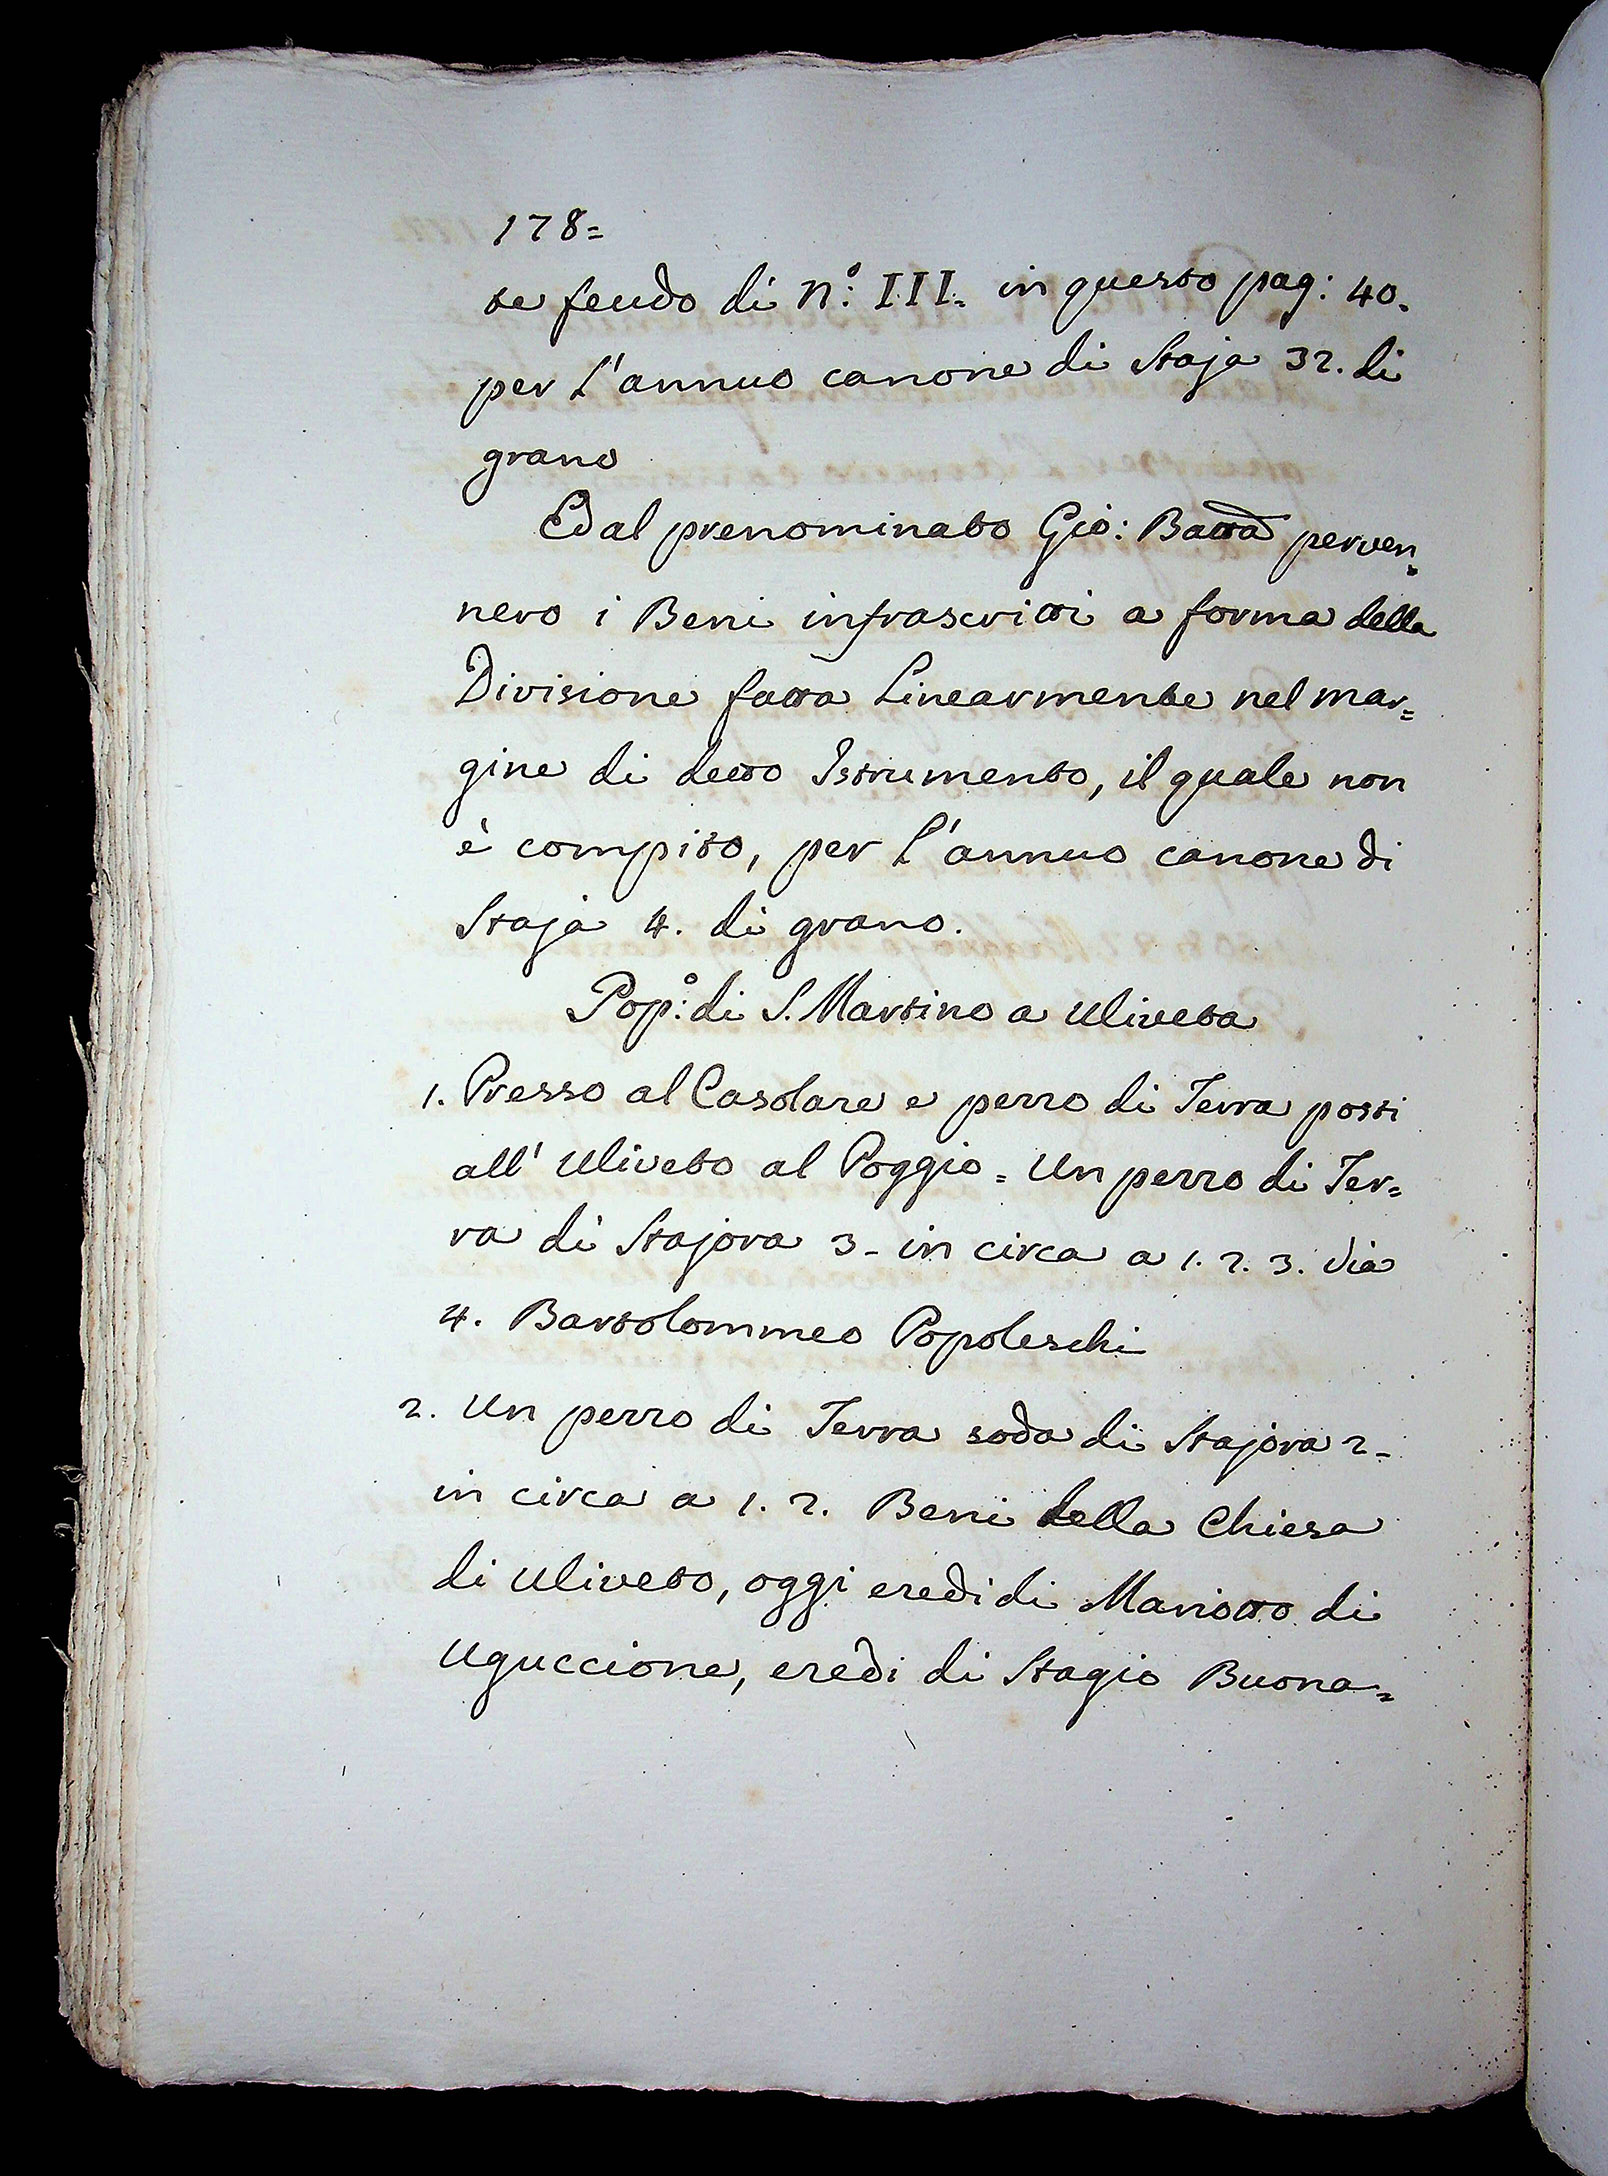 178=
te feudo di N.º III. in questo pag: 40.
per l'annuo canone di Staja 32. di
grano
Ed al prenominato Gio: Batta perven=
nero i Beni infrascritti a forma della
Divisione fatta Linearmente nel mar=
gine di detto Istrumento, il quale non
è compito, per l'annuo canone di
Staja 4. di grano.
Pop.º: di S. Martino a Uliveta
1. Presso al Casolare e pezzo di Terra posti
all' Uliveto al Poggio = Un pezzo di Ter=
ra di Stajora 3 - in circa a 1. 2. 3. via
4. Bartolommeo Popoleschi
2. Un pezzo di Terra soda di Stajora 2 -
in circa a 1. 2. Beni della Chiesa
di Uliveto, oggi eredi di Mariotto di
Uguccione, eredi di Stagio Buona=